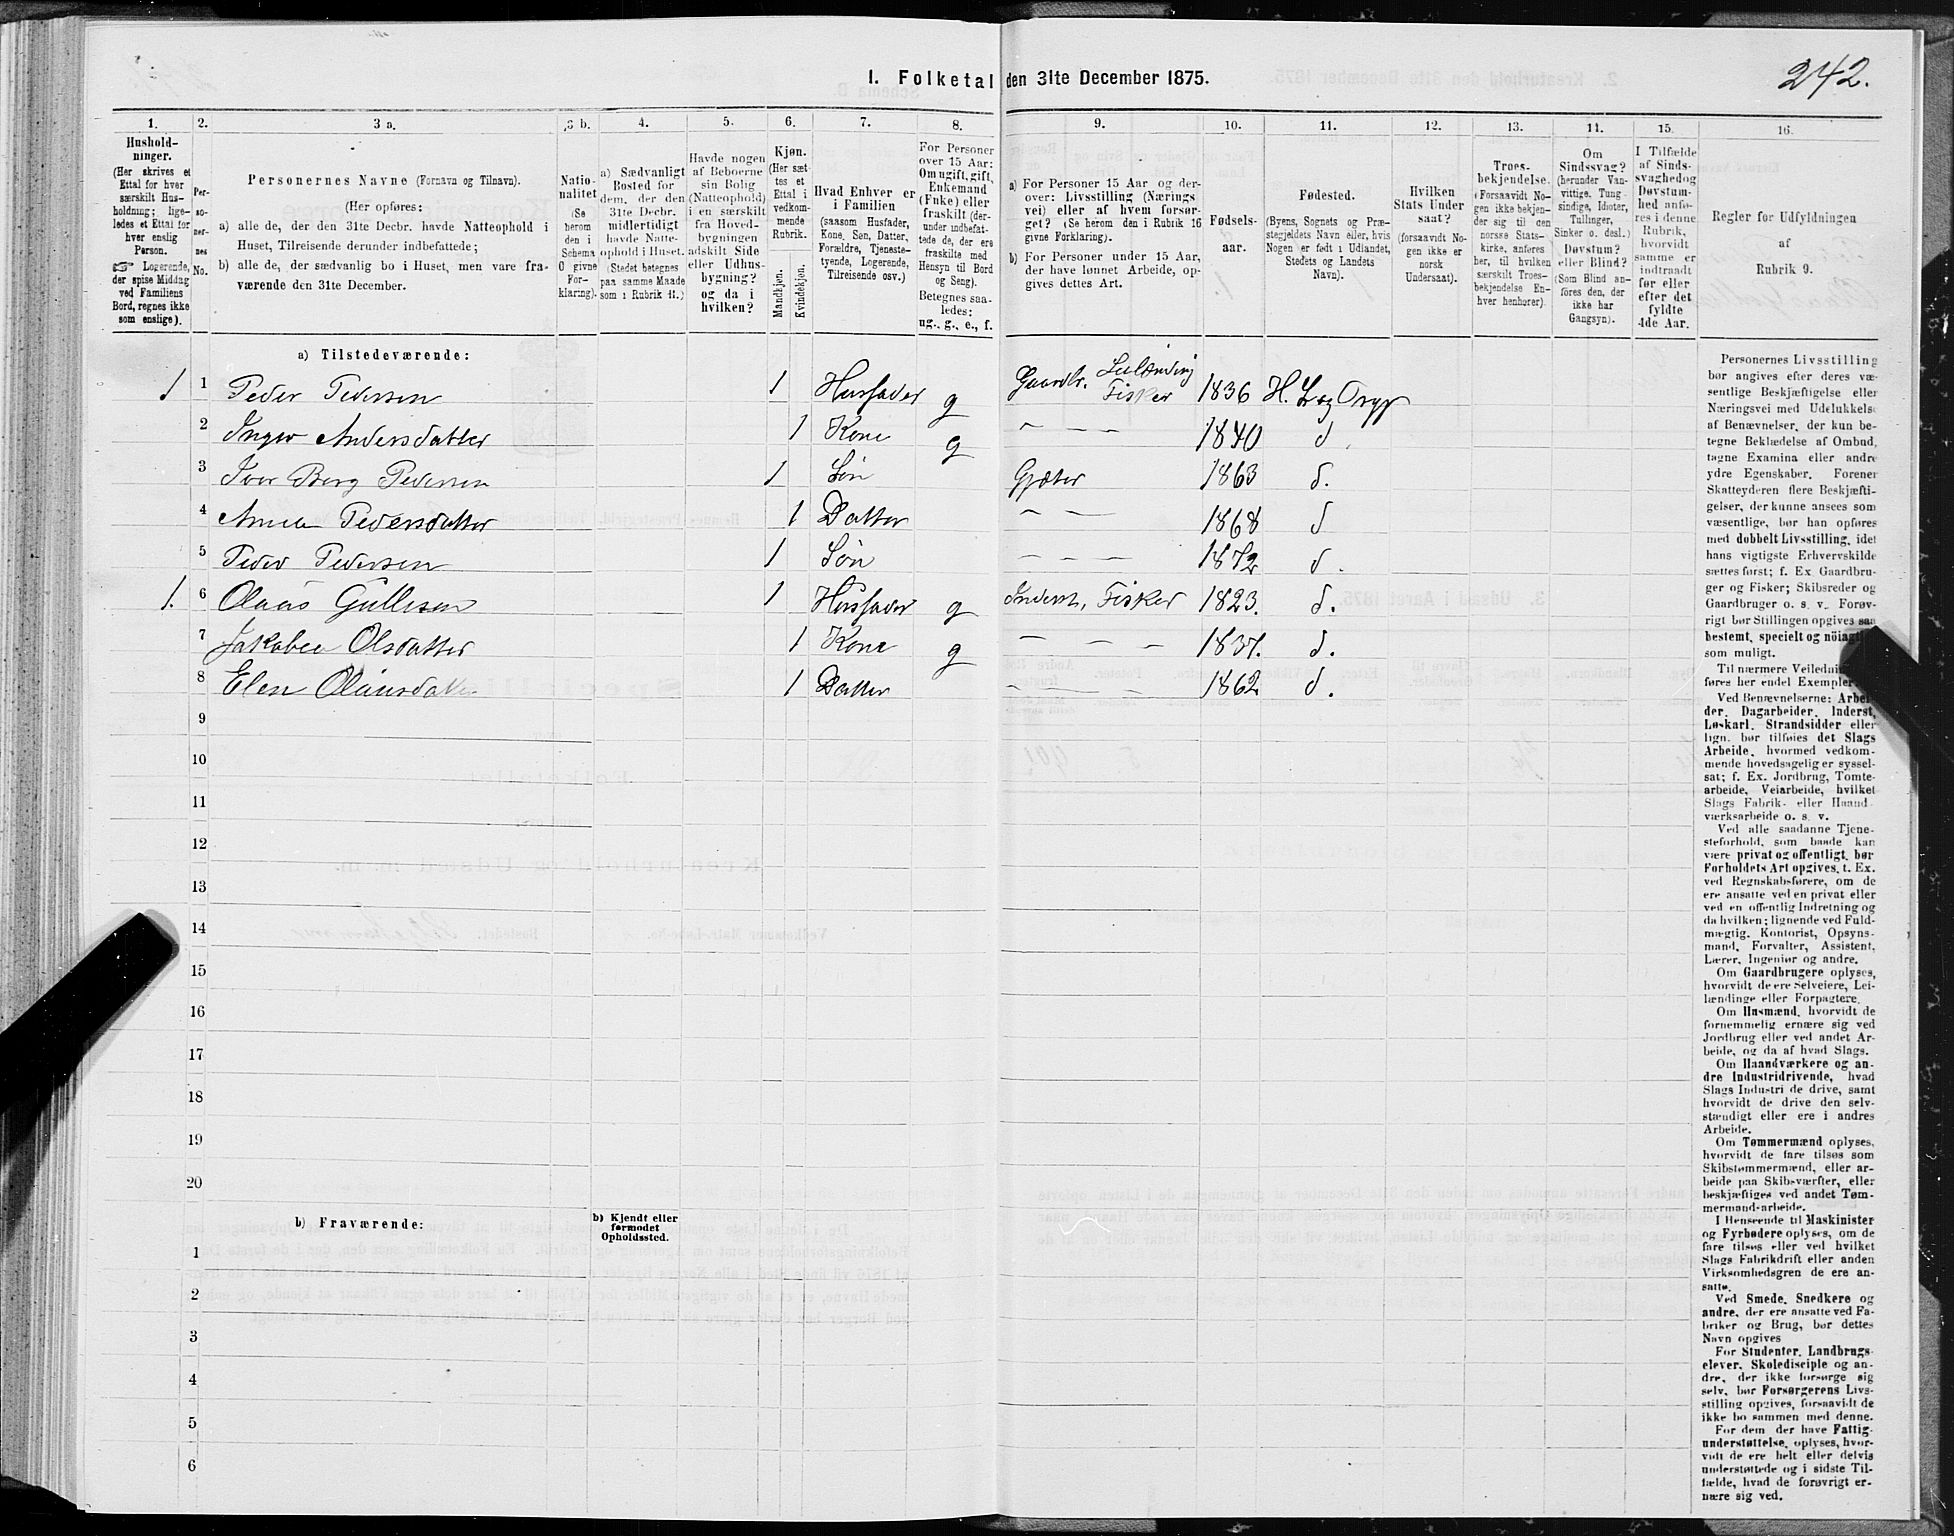 1. Folketal den 31te December 1875.
242.
1. 2. 3 a. 3 b. 4. 5. 6. 7. 8. 9. 10. 11. 12. 13. 14. 15. 16.
Hushold-
ninger.
(Her skrives et
Ettal for hver
særskilt Hus-
holdning; lige-
ledes et Ettal for
hver enslig
Person.
☞ Logerende,
der spise Middag
ved Familiens
Bord, regnes ikke
som enslige).
Per-
so-
ner-
nes
No.
Personernes Navne (Fornavn og Tilnavn).
(Her opføres:
a) alle de, der den 31te Decbr. havde Natteophold i
Huset, Tilreisende derunder indbefattede;
b) alle de, der sædvanlig bo i Huset, men vare fra-
værende den 31te December.
Natio-
nalitet
(Se
herom
den i
Schema
O givne
For-
klaring).
a) Sædvanligt
Bosted for
dem, der den
31te Decbr.
midlertidigt
havde Natte-
ophold i Huset.
(Stedet betegnes
paa samme Maade
som i Rubrik 11.)
Havde nogen
af Beboerne
sin Bolig
(Natteophold)
i en særskilt
fra Hoved-
bygningen
adskilt Side
eller Udhus-
bygning?
og da i
hvilken?
Kjøn.
(Her sæt-
tes et
Ettal i
vedkom-
mende
Rubrik.
Mandkjøn.
Kvindekjøn.
Hvad Enhver er
i Familien
(saasom Husfader,
Kone, Søn, Datter,
Forældre, Tjeneste-
tyende, Logerende,
Tilreisende osv.)
For Personer
over 15 Aar:
Om ugift, gift,
Enkemand
(Enke) eller
fraskilt (der-
under indbefat-
tede de, der ere
fraskilte med
Hensyn til Bord
og Seng).
Betegnes saa-
ledes:
ug., g., e., f.
a) For Personer 15 Aar og der-
over: Livsstilling (Nærings
vei) eller af hvem forsør-
get? (Se herom den i Rubrik 16
givne Forklaring).
b) For Personer under 15 Aar,
der have lønnet Arbeide, op-
gives dettes Art.
Fødsels-
aar.
Fødested.
(Byens, Sognets og Præ-
stegjeldets Navn eller, hvis
Nogen er født i Udlandet,
Stedets og Landets
Navn).
Hvilken
Stats Under
saat?
(forsaavidt No-
gen ikke er
norsk
Undersaat).
Troes-
bekjendelse.
(Forsaavidt No-
gen ikke bekjen-
der sig til den
norske Stats-
kirke, anføres
her, til hvilken
særskilt Troes-
bekjendelse En-
hver henhører).
Om
Sindssvag?
(herunder Van-
vittige, Tung-
sindige, Idioter,
Tullinger,
Sinker o. desl.)
Døvstum?
eller Blind?
(Som Blind an-
føres den, der
ikke har
Gangsyn).
I Tilfælde
af Sinds-
svaghed og
Døvstum-
hed anfø-
res i denne
Rubrik,
hvorvidt
samme er
indtraadt
før eller
efter det
fyldte
4de Aar.
Regler for Udfyldningen
af
Rubrik 9.
a) Tilstedeværende:
1 1 Peder Pedersen 1 Husfader g Gaardbr. Leilænding Fisker 1836
2 Inger Andersdatter 1 Kone g — — — 1840 d
3 Iver Berg Pedersen 1 Søn Gjæter 1863 d.
4 Anna Pedersdatter 1 Datter — — — 1868 d
5 Peder Pedersen 1 Søn — — — 1872 d.
1. 6 Olaus Gullesen 1 Husfader g Inderst, Fisker 1823. d.
7 Jakobea Olsdatter 1 Kone g — — — 1837. d.
8 Elen Olausdatter 1 Datter — — — 1862 d.
9
10
11
12
13
14
15
16
17
18
19
20
b) Fraværende:
b) Kjendt eller
formodet
Opholdssted.
1
2
3
4
5
6
Personernes Livsstilling
bør angives efter deres væ-
sentlige Beskjæftigelse eller
Næringsvei med Udelukkelse
af Benævnelser, der kun be-
tegne Beklædelse af Ombud,
tagne Examina eller andre
ydre Egenskaber. Forener
Skatteyderen flere Beskjæfti-
gelser, der kunne ansees som
væsentlige, bør han opføres
med dobbelt Livsstilling, idet
hans vigtigste Erhvervskilde
sættes først; f. Ex. Gaardbru-
ger og Fisker; Skibsreder og
Gaardbruger o. s. v. Forøv-
rigt bør Stillingen opgives saa
bestemt, specielt og nöiagtig
som muligt.
Til nærmere Veiledning
føres her endel Exempler:
Ved Benævnelserne: Arbei-
der, Dagarbeider, Inderst,
Løskarl, Strandsidder eller
lign. bør tilføies det Slags
Arbeide, hvormed vedkom-
mende hovedsagelig er syssel-
sat; f. Ex. Jordbrug, Tomte-
arbeide, Veiarbeide, hvilket
Slags Fabrik- eller Haand-
værksarbeide o. s. v.
Ved alle saadanne Tjene-
steforhold, som baade kan
være privat og offentligt, bør
Forholdets Art opgives, t. Ex.
ved Regnskabsførere, om de
ere ansatte ved en privat eller
ved en offentlig Indretning og
da hvilken; lignende ved Fuld-
mægtig, Kontorist, Opsyns-
mand, Forvalter, Assistent,
Lærer, Ingeniør og andre.
Om Gaardbrugere oplyses,
hvorvidt de ere Selveiere, Lei-
lændinge eller Forpagtere.
Om Husmænd, hvorvidt de
fornemmelig ernære sig ved
Jordbrug eller ved andet Ar-
beide, og da af hvad Slags.
Om Haandværkere og an-
dre Industridrivende, hvad
Slags Industri de drive, samt
hvorvidt de drive den selv-
stændigt eller ere i andres
Arbeide.
Om Tømmermænd oplyses,
hvorvidt de fare tilsøs som
Skibstømmermænd, eller ar-
beide paa Skibsværfter, eller
beskjæftiges ved andet Tøm-
mermand-arbeide.
I Henseende til Maskinister
og Fyrbødere oplyses, om de
fare tilsøs eller ved hvilket
Slags Fabrikdrift eller anden
Virksomhedsgren de ere an-
satte.
Ved Smede, Snedkere og
andre, der ere ansatte ved Fa-
briker og Brug, bør dettes
Navn opgives
For Studenter, Landbrugs-
elever, Skoledisciple og an-
dre, der ikke forsørge sig
selv, bør Forsørgerens Livs-
stilling opgives, forsaavidt de
ikke bo sammen med denne.
For dem der have Fattig-
understøttelse, oplyses, hvor-
vidt de ere helt eller delvis
understøttede og i sidste Til-
fælde, hvad de forøvrigt er-
nære sig ved.